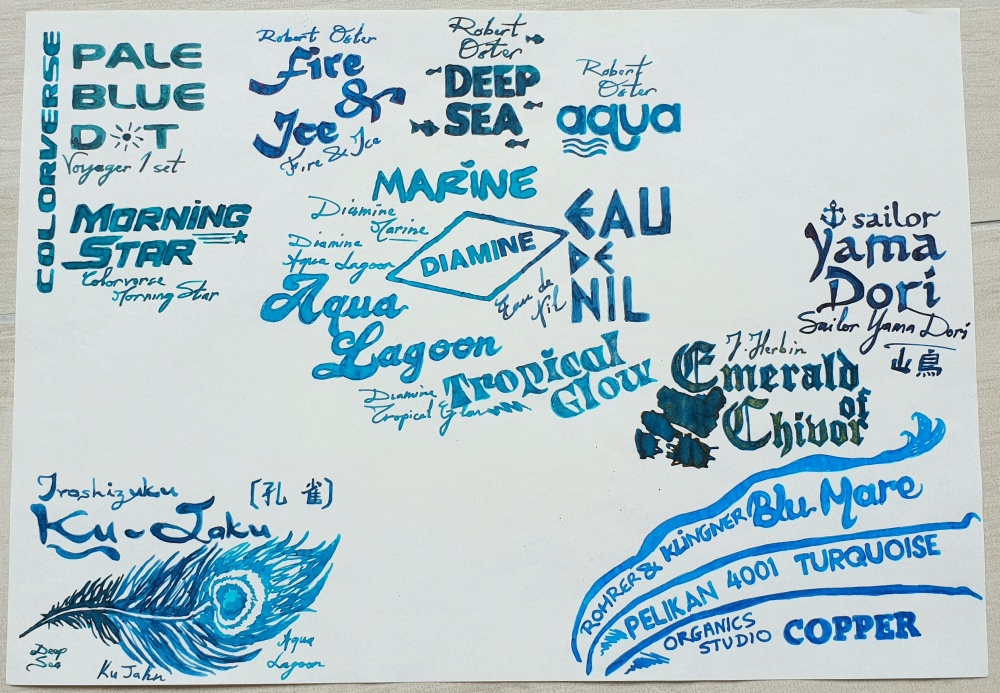 COLORVERSE
PALE
BLUE
DOT
Voyager 1 set
MORNING
STAR
Colorverse
Morning Star
Robert Oster
fire
&
Ice
Fire & Ice
Robert
Oster
DEEP
SEA
Robert
Oster
aqua
MARINE
Diamine
Marine
DIAMINE
EAU
DE
NIL
Eau de
Nil
Diamine
Aqua Lagoon
Aqua
Lagoon
Diamine
Tropical Glow
Tropical
Glow
sailor
Yama
Dori
Sailor Yama Dori
山鳥
J. Herbin
Emerald
of
Chivor
Iroshizuku
[孔雀]
Ku-Jaku
Deep
Sea
Ku Jaku
Aqua
Lagoon
ROHRER & KLINGNER Blu Mare
PELIKAN 4001 TURQUOISE
ORGANICS
STUDIO
COPPER